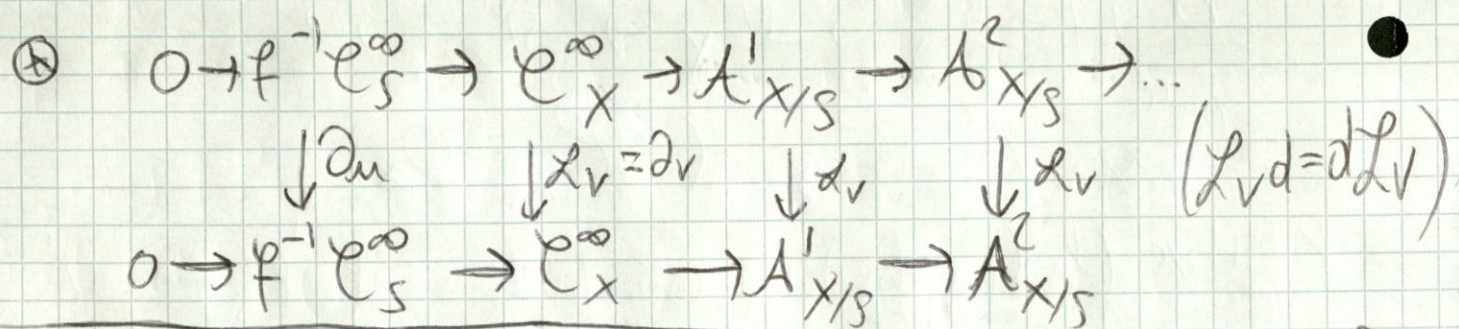 ⊛ 0 → f⁻¹𝒞^∞_S → 𝒞^∞_X → A¹_{X/S} → A²_{X/S} → ...
↓∂_u ↓ℒ_v = ∂_v ↓ℒ_v ↓ℒ_v (ℒ_v d = dℒ_v)
0 → f⁻¹𝒞^∞_S → 𝒞^∞_X → A¹_{X/S} → A²_{X/S}